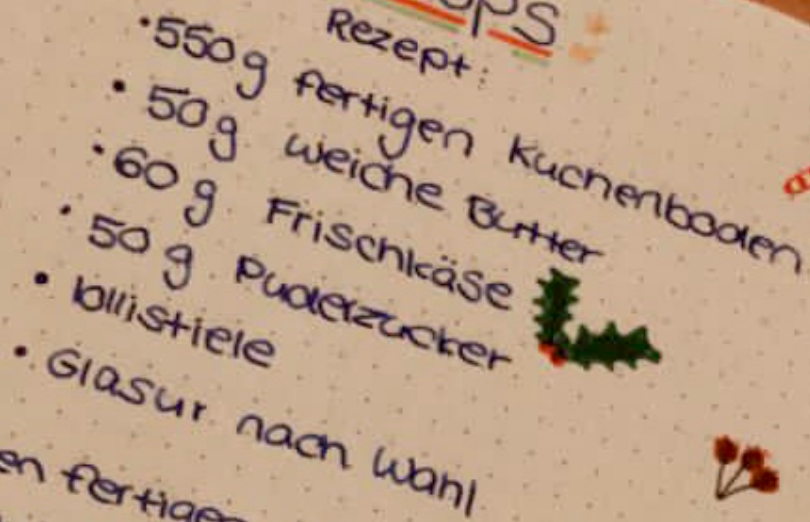 Rezept:
• 550g fertigen Kuchenboden
• 50g weiche Butter
• 60g Frischkäse
• 50g Puderzucker
• lollistiele
• Glasur nach Wahl
en fertigen